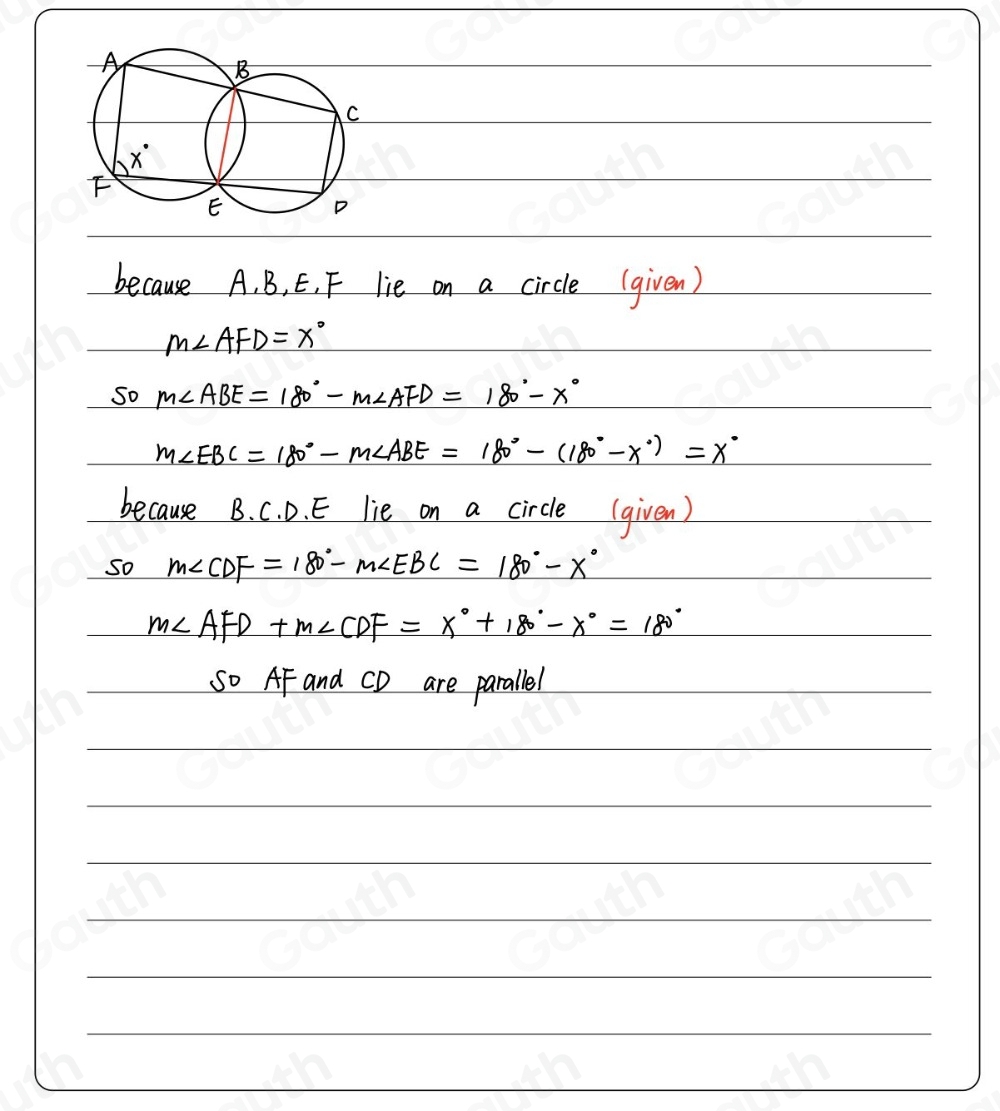 A
B
C
x°
F
E
D
because A,B,E,F lie on a circle (given)
m∠AFD=x°
so m∠ABE=180°-m∠AFD=180°-x°
m∠EBC=180°-m∠ABE=180°-(180°-x°)=x°
because B.C.D.E lie on a circle (given)
so m∠CDF=180°-m∠EBC=180°-x°
m∠AFD+m∠CDF=x°+180°-x°=180°
so AF and CD are parallel
Gauth